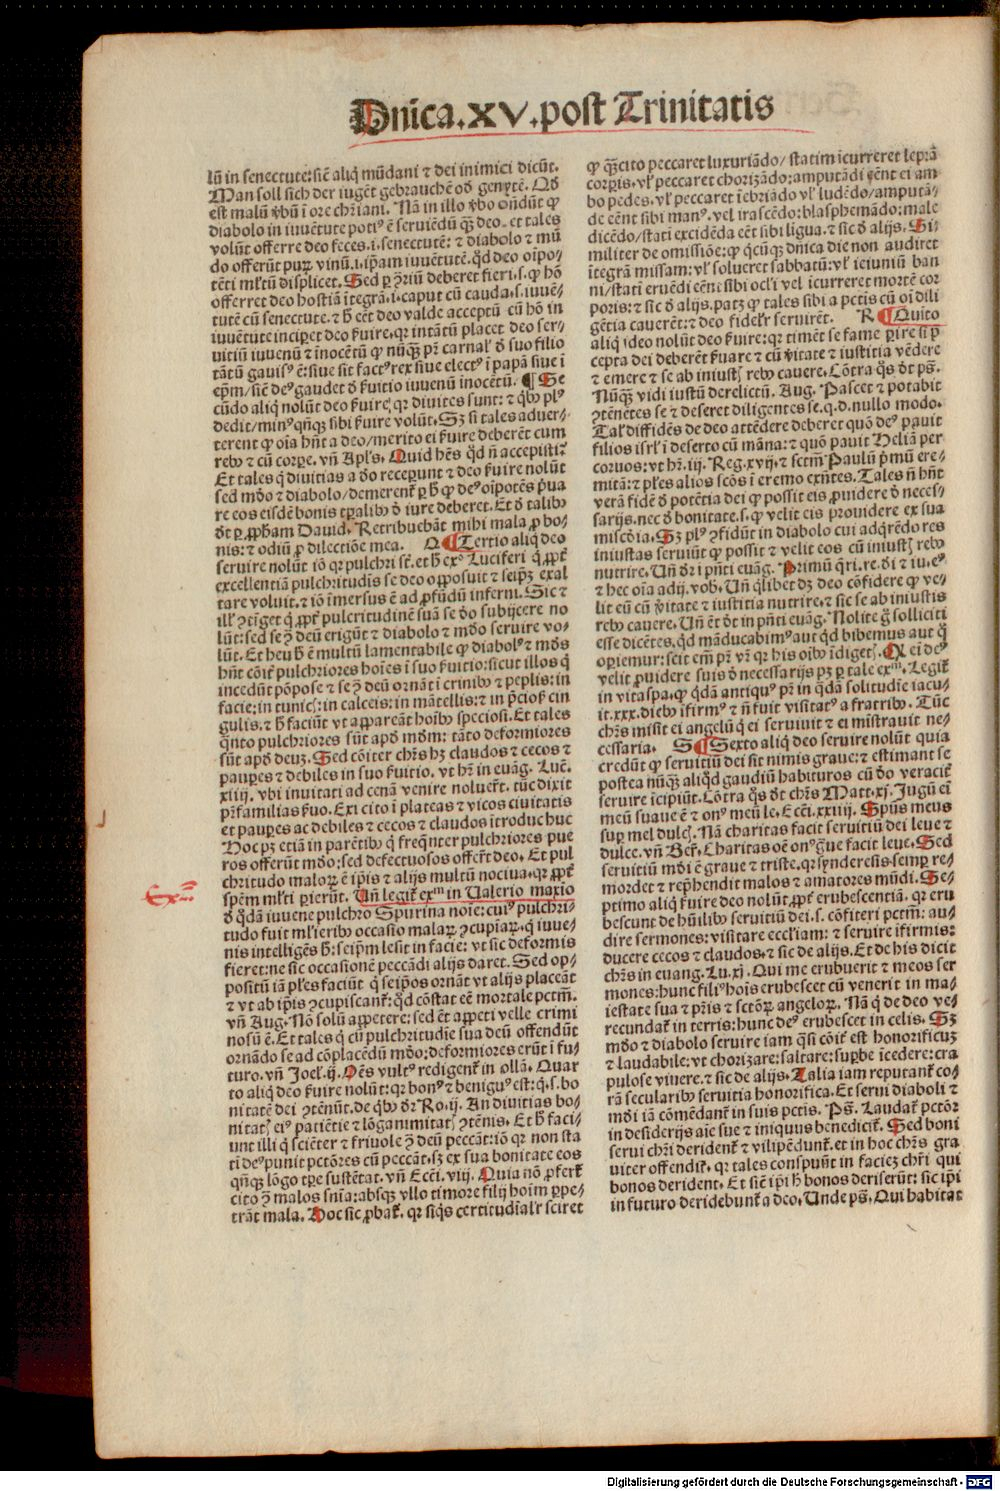 Dnīca.XV.post Trinitatis
lū in senectute: sic̄ aliq̄ mūdani ⁊ dei inimici dicūt.
Man soll sich der iugēt gebrauchē
est malū v̄bū ī ore chr̄iani. Nā in illo v̄bo on̄dūt ꝙ
diabolo in iuvētute poti⁹ ē serviēdū qȝ̄ deo. et tales
volūt offerre deo feces.i.senectutē: ⁊ diabolo ⁊ mū
do offerūt puꝝ vinū.i.ip̄am iuvētutē. qd̄ deo oīpo⸗
tēti ml̄tū displicet. Sed ꝑ ꝯriū deberet fieri.s.ꝙ hō
offerret deo hostiā ītegrā.i.caput cū cauda.s.iuvē⸗
tutē cū senectute. ⁊ ḣ eēt deo valde acceptū cū hō in
iuvētute inciꝑet deo ẜuire. qꝛ intātū placet deo ser⸗
vitiū iuvenū ⁊ īnocētū ꝙ nūqȝ̄ pr̄ carnal̓ ď suo filio
tātū gavis⁹ ē: sive sit fact⁹ rex sive elect⁹ ī papā sive ī
ep̄m/sic̄ de⁹ gaudet ď ẜuitio iuvenū inocētū. ¶ Se
cūdo aliq̄ nolūt deo ẜuire/ qꝛ divites sunt: ⁊ qͥbꝰ pl⁹
dedit/min⁹ qn̄qȝ sibi ẜuire volūt. Sȝ si tales adver⸗
terent ꝙ oīa hn̄t a deo/merito ei ẜuire deberēt cum
rebꝰ ⁊ cū corꝑe. vn̄ Apl̄s. Quid hēs qd̄ n̄ accepisti?
Et tales q̇ divitias a ďo receꝑunt ⁊ deo ẜuire nolūt
sed mďo ⁊ diabolo/demerent̄ ꝑ ḣ ꝙ de⁹ oīpotēs p̄va
re eos eisdē bonis tp̄alibꝰ ď iure deberet. Et ď talibꝰ
dt̄ ꝑ ꝓpham David. Retribuebāt mihi mala ꝓ bo⸗
nis: ⁊ odiū ꝓ dilectiōe mea. Q ¶ Tertio aliq̄ deo
servire nolūt iō qꝛ pulchri st̄. et ḣ exº Luciferi q̇ ꝓpt̄
excellentiā pulchritudīs se deo opposuit ⁊ seipȝ exal
tare voluit. ⁊ iō īmersus ē ad ꝓfūdū inferni. Sic ⁊
ill̓ ꝯtīget q̇ ꝓpt̄ pulcritudinē suā se ďo subijcere no
lūt: sed se ꝯ deū erigūt ⁊ diabolo ⁊ mďo servire vo⸗
lūt. Et heu ḣ ē multū lamentabile ꝙ diabol⁹ ⁊ mďs
hn̄t cōit̄ pulchriores hoīes ī suo ẜuitio: sicut illos q̇
incedūt pōpose ⁊ se ꝯ deū ornāt ī crinibꝰ ⁊ peplis: in
facie: in tunicꝭ: in calceis: in mātellis: ⁊ in p̄ciosꝭ cin
gulis. ⁊ ḣ faciūt vt appareāt hoībꝰ speciosi. Et tales
qn̄to pulchriores sūt apď mďm: tāto deformiores
sūt apď deuȝ. Sed cōiter chr̄s hȝ claudos ⁊ cecos ⁊
pauꝑes ⁊ debiles in suo ẜuitio. vt hr̄ in euāg. Luc̄.
xiiij. vbi invitati ad cenā venire noluer̄t. tūc dixit
pr̄familias ẜuo. Exi cito ī plateas ⁊ vicos civitatis
et pauꝑes ac debiles ⁊ cecos ⁊ claudos ītroduc huc
Hoc pȝ etiā in parētibꝰ q̇ freqn̄ter pulchriores pue
ros offerūt mďo: sed defectuosos offer̄t deo. Et pul
chritudo maloꝝ ē ip̄is ⁊ alijs multū nociva. qꝛ ꝓpt̄
spēm ml̄ti ꝑierūt. Vn̄ legit̄ exᵐ in Valerio maxio
ď qďā iuvene pulchro Spurina noīe: cui⁹ pulchri⸗
tudo fuit ml̄ieribꝰ occasio malaꝝ ꝯcupīaꝝ. q̇ iuve⸗
nis intelligēs ḣ: seip̄m lesit in facie: vt sic deformis
fieret: ne sic occasionē peccādi alijs daret. Sed op⸗
positū iā pl̄es faciūt q̇ seip̄os ornāt vt alijs placeāt
⁊ vt ab ip̄is ꝯcupiscant̄: qd̄ cōstat eē mortale pctm̄.
vn̄ Aug. Nō solū appetere: sed ēt appeti velle crimi
nosū ē. Et tales q̇ cū pulchritudīe sua deū offendūt
ornādo se ad cōplacēdū mďo: deformiores erūt ī fu⸗
turo. vn̄ Joel.ij. Oēs vult⁹ redigent̄ in ollā. Quar
to aliq̄ deo ẜuire nolūt: qꝛ bon⁹ ⁊ benign⁹ est: q̇.s.bo
nitatē dei ꝯtēnūt. de qͥbꝰ dr̄ Ro.ij. An divitias bo⸗
nitatꝭ ei⁹ patiētie ⁊ lōganimitatꝭ ꝯtēnis. Et ḣ faci⸗
unt illi q̇ sciēter ⁊ frivole ꝯ deū peccāt: iō qꝛ non sta
ti de⁹ punit pctōres cū peccāt. sȝ ex sua bonitate eos
qn̄qȝ lōgo tꝑe sustētat. vn̄ Ecc̄i.viij. Quia nō ꝓfert̄
cito ꝯ malos sn̄ia: absqȝ vllo timore filij hoīm ꝑpe⸗
trāt mala. Hoc sic ꝓbat̄. qꝛ siqͥs certitudīalr̄ sciret
Exᵐ
ꝙ qȝ̄cito peccaret luxuriādo/statim īcurreret leprā
corꝑis. vl̓ peccaret chorizādo: amputādi eēnt ei am
bo pedes. vl̓ peccaret īebriādo vl̓ ludēdo/amputā⸗
de eēnt sibi man⁹. vel irascēdo: blasphemādo: male
dicēdo/stati excidēda eēt sibi ligua. ⁊ sic ď alijs. Si⸗
militer de omissiōe: ꝙ qͥcūqȝ dnīca die non audiret
ītegrā missam: vl̓ solveret sabbatū: vl̓ ieiuniū ban
ni/stati eruēdi eēnt sibi ocl̓i vel icurreret mortē cor
poris: ⁊ sic ď alijs. patȝ ꝙ tales sibi a pctis cū oī dili
gētia caverēt: ⁊ deo fidelr̄ servirēt. R ¶ Quito
aliq̄ ideo nolūt deo ẜuire: qꝛ timēt se fame ꝑire si p̄
cepta dei deberēt ẜvare ⁊ cū v̄itate ⁊ iustitia vēdere
⁊ emere ⁊ se ab iniustꝭ rebꝰ cavere. Cōtra qͦs dt̄ ps̄.
Nūqȝ̄ vidi iustū derelictū. Aug. Pascet ⁊ potabit
ꝯtēnētes se ⁊ deseret diligentes se. q.d. nullo modo.
Tal̓ diffidēs de deo attēdere deberet quō de⁹ pavit
filios isrl̓ ī deserto cū māna: ⁊ quō pavit Heliā per
corvos: vt hr̄.iij.Reg.xvij. ⁊ sctm̄ Paulū p̄mū ere⸗
mitā: ⁊ pl̄es alios scōs ī eremo exn̄tes. Tales n̄ hn̄t
verā fidē ď potētia dei ꝙ possit eis ꝓvidere ď neces⸗
sarijs. nec ď bonitate.s.ꝙ velit eis providere ex sua
mīscďia. Sȝ pl⁹ ꝯfidūt in diabolo cui adqͥrēdo res
iniustas serviūt ꝙ possit ⁊ velit eos cū iniustꝭ rebꝰ
nutrire. Vn̄ dr̄ ī pn̄ti euāg. Primū qͥri.re.di ⁊ iu.e⁹
⁊ hec oīa adij.vob. Vn̄ qͥlibet dȝ deo cōfidere ꝙ ve⸗
lit eū cū v̄itate ⁊ iustitia nutrire. ⁊ sic se ab iniustis
rebꝰ cavere. Vn̄ ēt dt̄ in pn̄ti euāg. Nolite g̊ solliciti
esse dicētes. qd̄ māducabim⁹ aut qd̄ bibemus aut q̊
oꝑiemur: scit em̄ pr̄ vr̄ qꝛ his oībꝰ īdigetꝭ. Qd̄ ei de⁹
velit ꝓvidere suis ď necessarijs pȝ ꝑ tale exᵐ. Legit̄
in vitaspa. ꝙ qďā antiqu⁹ pr̄ in qďā solitudīe iacu⸗
it.xxx.diebꝰ īfirm⁹ ⁊ n̄ fuit visitat⁹ a fratribꝰ. Tūc
chr̄s misit ei angelū q̇ ei servivit ⁊ ei mīstravit ne⸗
cessaria. S ¶ Sexto aliq̄ deo servire nolūt quia
credūt ꝙ servitiū dei sit nimis grave: ⁊ estimant se
postea nūqȝ̄ aliqd̄ gaudiū habituros cū ďo veracit̄
servire icipiūt. Cōtra qͦs dt̄ chr̄s Matt.xj. Jugū ei
meū suave ē ⁊ on⁹ meū le. Ecc̄i.xxiiij. Spūs meus
suꝑ mel dulcꝭ. Nā charitas facit servitiū dei leve ⁊
dulce. vn̄ Ber̄. Charitas oē on⁹qȝ̄ue facit leve. Sed
servitiū mďi ē grave ⁊ triste. qꝛ synderesis semꝑ re⸗
mordet ⁊ rep̄hendit malos ⁊ amatores mūdi. Se⸗
ptimo aliq̄ ẜuire deo nolūt ꝓpt̄ erubescentiā. qꝛ eru
bescunt de hūilibꝰ servitiū dei.s.cōfiteri pctm̄: au⸗
dire sermones: visitare eccl̄iam: ⁊ servire īfirmis:
ducere cecos ⁊ claudos. ⁊ sic de alijs. Et de his dicit
chr̄s in euang. Lu.xj. Qui me erubuerit ⁊ meos ser
mones: hunc fili⁹ hoīs erubescet cū venerit in ma⸗
iestate sua ⁊ pr̄is ⁊ sctōꝝ angeloꝝ. Nā q̇ de deo ve⸗
recundat̄ in terris: hunc de⁹ erubescet in celis. Sȝ
mďo ⁊ diabolo servire iam qͣsi cōit̄ est honorificuȝ
⁊ laudabile: vt chorizare: saltare: suꝑbe īcedere: cra
pulose vivere. ⁊ sic de alijs. Talia iam reputant̄ co⸗
rā secularibꝰ servitia honorifica. Et servi diaboli ⁊
mďi iā cōmēdant̄ in suis pctis. Ps̄. Laudat̄ pctōr
in desiderijs aīe sue ⁊ iniquus benedicit̄. Sed boni
servi chr̄i derident̄ ⁊ vilipēdunt̄. et in hoc chr̄s gra
viter offendit̄. qꝛ tales conspuūt in facieȝ chr̄i qui
bonos derident. Et sic̄ ip̄i ḣ bonos deriserūt: sic ip̄i
in futuro deridebunt̄ a deo. Unde ps̄. Qui habitat
Digitalisierung gefördert durch die Deutsche Forschungsgemeinschaft - DFG